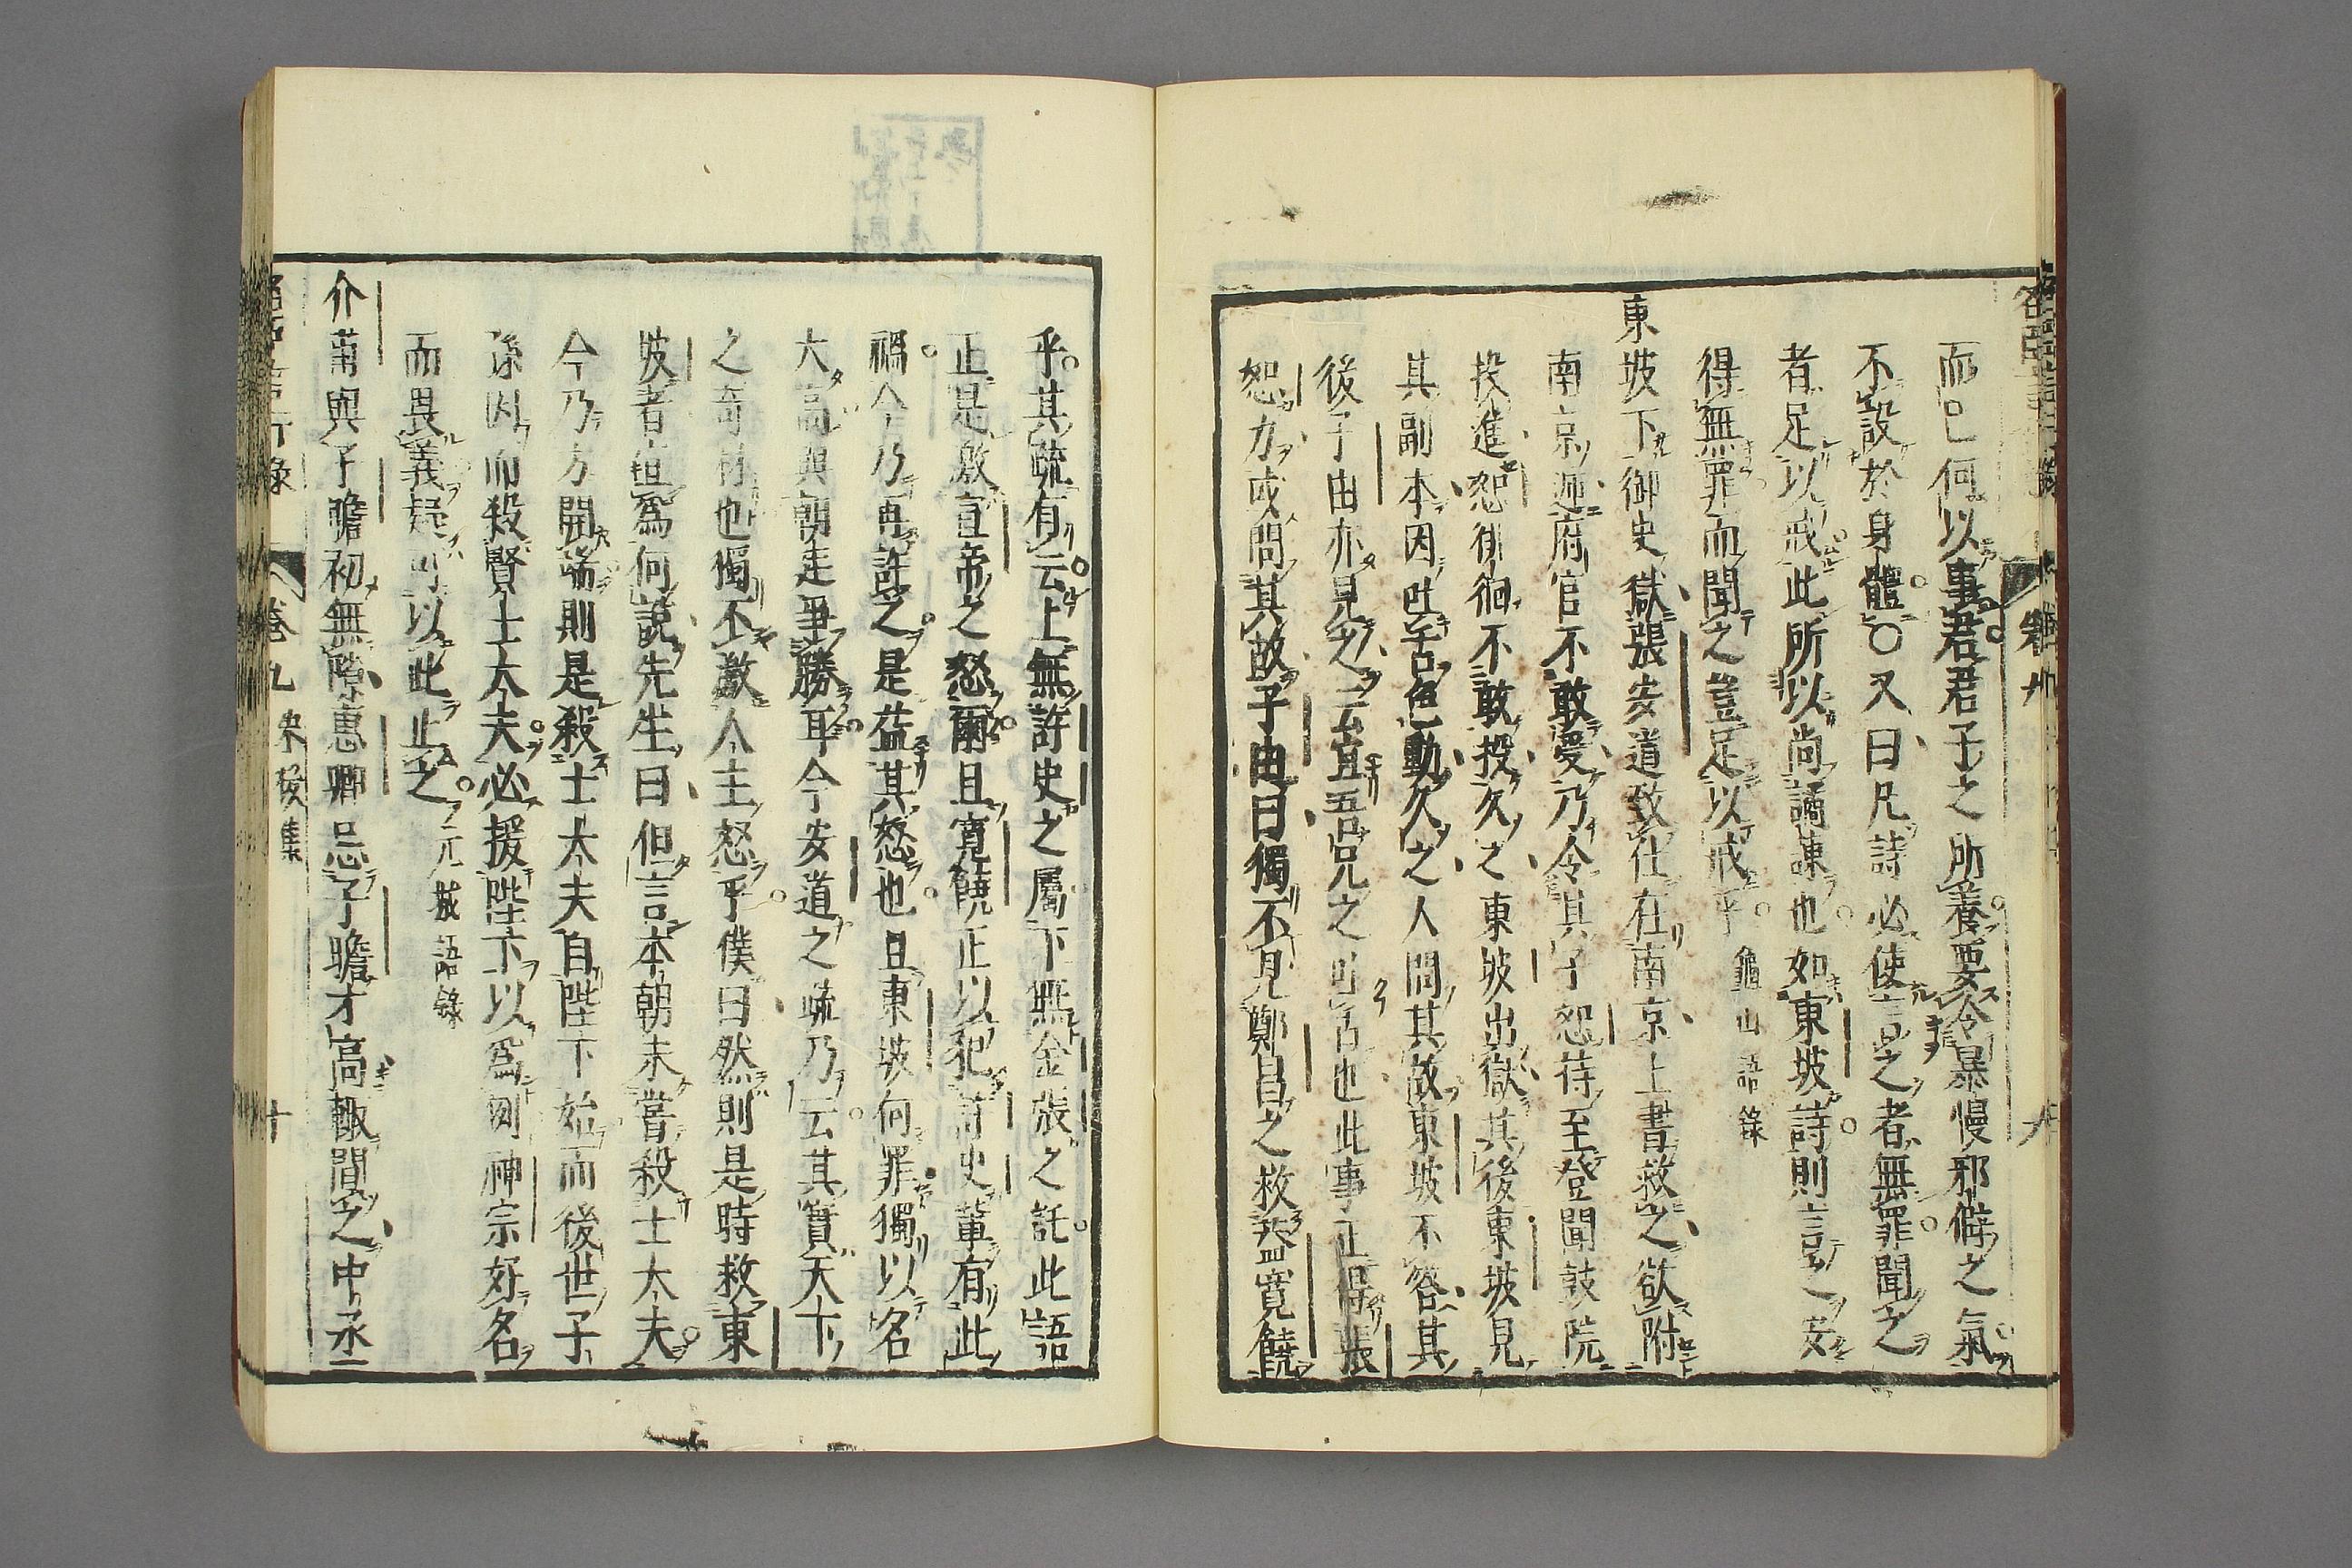 而已何以事君君子之所養要令暴慢邪僻之氣
不設於身體〇又曰凡詩必使言之者無罪聞之
者足以戒此所以尚譎諫也如東坡詩則言之安
得無罪而聞之豈足以戒乎 龜山語錄
東坡下御史獄張安道致仕在南京上書救之欲附
南京遞府官不敢受乃令其子恕待至登聞鼓院
投進恕徘徊不敢投久之東坡出獄其後東坡見
其副本因吐舌色動久之人問其故東坡不答其
後子由亦見之云宜吾兄之吐舌也此事正得張
恕力或問其故子由曰獨不見鄭昌之救蓋寬饒
乎其疏有云上無許史之屬下無金張之託此語
正是激宣帝之怒爾且寬饒正以犯許史輩有此
禍今乃再訐之是益其怒也且東坡何罪獨以名
大高與朝廷爭勝耳今安道之疏乃云其實天下
之奇材也獨不激人主怒乎僕曰然則是時救東
坡者宜爲何說先生曰但言本朝未嘗殺士大夫
今乃方開端則是殺士大夫自陛下始而後世子
孫因而殺賢士大夫必援陛下以爲例神宗好名
而畏義疑可以此止之 元城語錄
介甫與子瞻初無隙惠卿忌子瞻才高輒間之中丞
卷九
宋後集
十